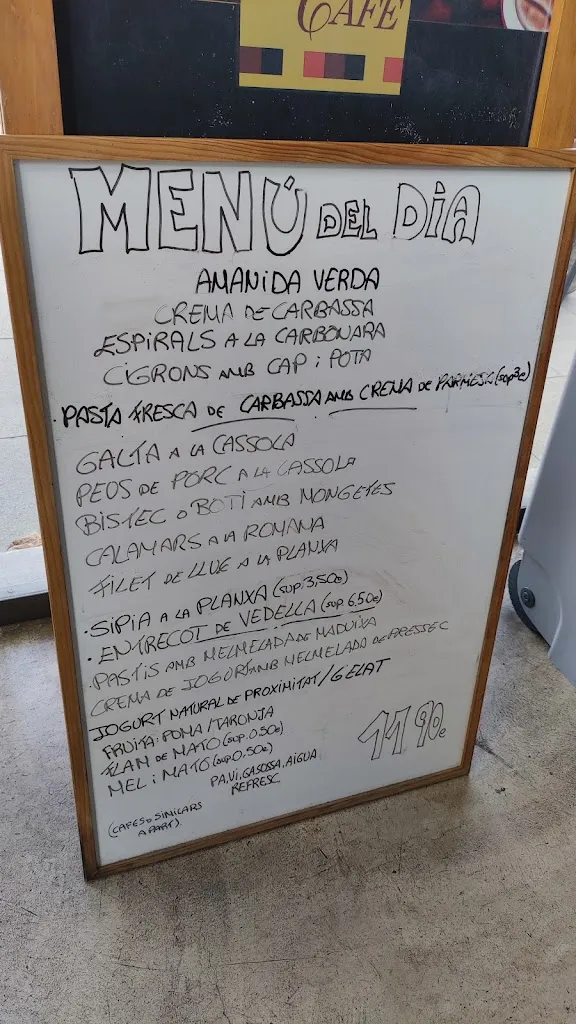 CAFÉ
MENÚ DEL DIA
AMANIDA VERDA
CREMA DE CARBASSA
ESPIRALS A LA CARBONARA
CIGRONS AMB CAP i POTA
· PASTA FRESCA DE CARBASSA AMB CREMA DE PARMESÀ (sup 3€)
GALTA A LA CASSOLA
PEUS DE PORC A LA CASSOLA
BISTEC o BOTI AMB MONGETES
CALAMARS A LA ROMANA
FILET DE LLUÇ A LA PLANXA
· SiPiA A LA PLANXA (sup. 3,50€)
· ENTRECOT DE VEDELLA (sup. 6,50€)
· PASTIS AMB MELMELADA DE MADUIXA
CREMA DE IOGURT AMB MELMELADA DE PRESSEC
IOGURT NATURAL DE PROXIMITAT / GELAT
FRUITA: POMA / TARONJA
FLAM DE MATO (sup. 0,50€)
MEL i MATO (sup. 0,50€)
11,90€
PA, Vi, GASOSSA, AIGUA
REFRESC.
(CAFES o SIMILARS
APART).